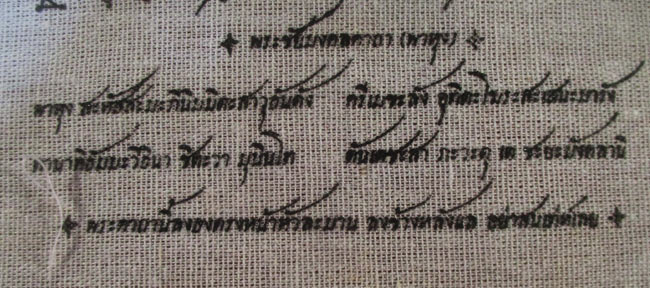 พระชัยมงคลคาถา (พาหุง)
พาหุง สะหัสสะมะภินิมมิตะสาวุธันตัง ครีเมขะลัง อุทิตะโฆระสะเสนะมารัง
ทานาทิธัมมะวิธินา ชิตะวา มุนินโท ตันเตชะสา ภะวะตุ เต ชะยะมังคลานิ
พระคาถานี้ลงธงตรงหน้าหัวละมาน ลงช้างหลังแล อย่าสนเท่ห์เลย